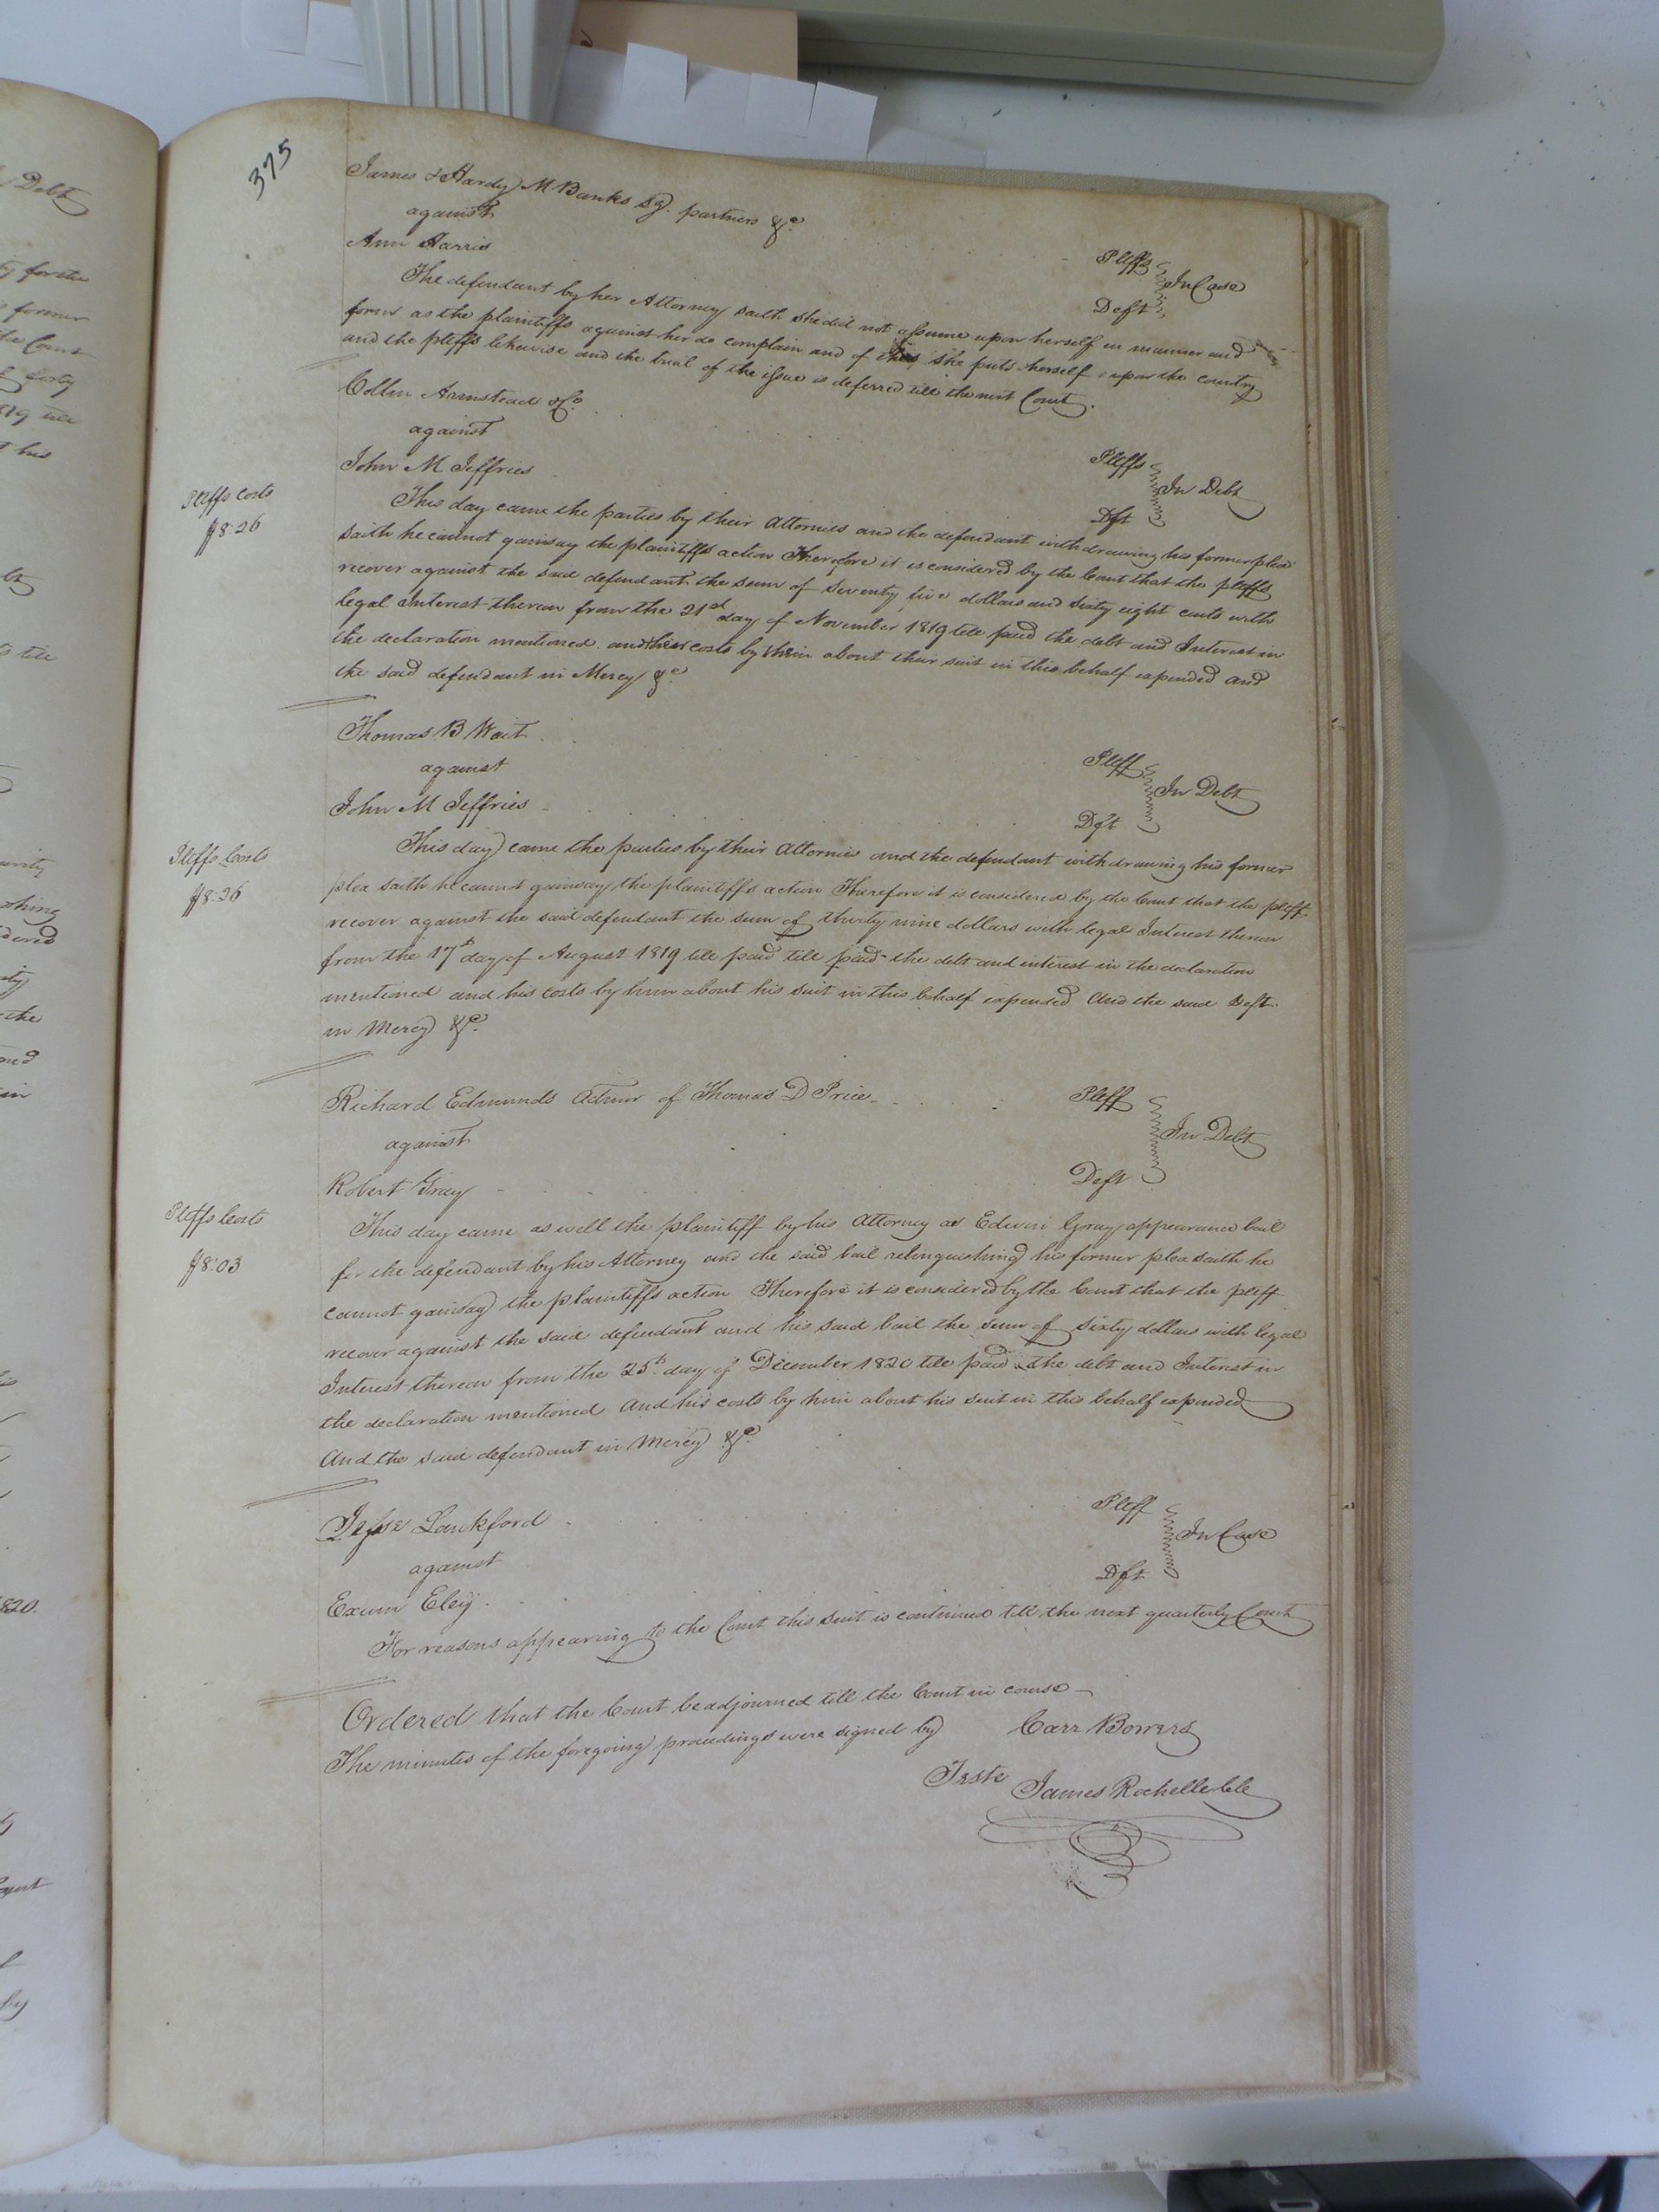 375
James & Hardy M. Banks Sg. partners &c.
against
Pleffs
In Case
Ann Harris
Deft
The defendant by her Attorney saith she did not assume upon herself in manner and
form as the plaintiffs against her do complain and of this she puts herself upon the country
and the pleffs likewise and the trial of the issue is deferred till the next Court.
Collin Armstead & Co.
Pleffs
against
In Debt
John M Jeffries
Dft
Pleffs costs
$8.26
This day came the parties by their Attornies and the defendant withdrawing his former plea
saith he cannot gainsay the plaintiffs action Therefore it is considered by the Court that the pleffs
recover against the said defendant the sum of Seventy five dollars and Sixty eight cents with
legal Interest thereon from the 21st day of November 1819 till paid the debt and Interest in
the declaration mentioned and their costs by them about their suit in this behalf expended And
the said defendant in Mercy &c.
Thomas B Wait
Pleff
against
In Debt
John M Jeffries
Dft
Pleffs Costs
$8.26
This day came the parties by their Attornies and the defendant withdrawing his former
plea saith he cannot gainsay the plaintiffs action Therefore it is considered by the Court that the pleff
recover against the said defendant the sum of thirty nine dollars with legal Interest thereon
from the 17th day of August 1819 till paid till paid the debt and interest in the declaration
mentioned and his costs by him about his suit in this behalf expended And the said Deft.
in Mercy &c.
Richard Edmunds Admor of Thomas D Price
Pleff
against
In Debt
Robert Gray
Deft
Pleffs Costs
$8.03
This day came as well the plaintiff by his Attorney as Edwin Gray appearance bail
for the defendant by his Attorney and the said bail relinquishing his former plea saith he
cannot gainsay the plaintiffs action Therefore it is considered by the Court that the pleff
recover against the said defendant and his said bail the sum of Sixty dollars with legal
Interest thereon from the 25th day of December 1820 till paid the debt and Interest in
the declaration mentioned And his costs by him about his suit in this behalf expended
And the said defendant in Mercy &c.
Jesse Lankford
Pleff
against
In Case
Exum Eley
Dft
For reasons appearing to the Court this suit is continued till the next quarterly Court
Ordered that the Court be adjourned till the Court in course
The minutes of the foregoing proceedings were signed by Carr Bowers
Teste James Rochelle Cle